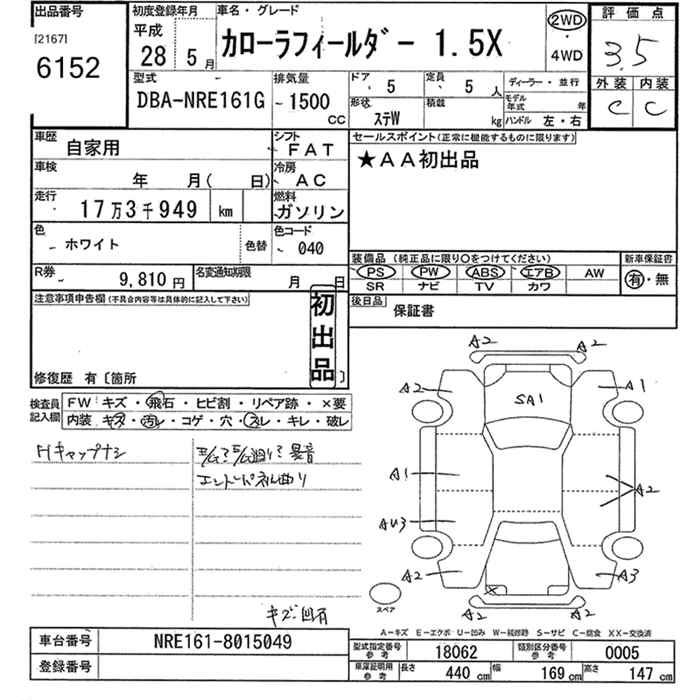 出品番号
[2167]
6152
初度登録年月
平成
28年 5月
車名・グレード
カローラフィールダー 1.5X
2WD
・
4WD
評価点
3.5
外装 内装
C C
型式
DBA-NRE161G
排気量
1500
CC
ドア 5
定員 5 人
形状 ステW
積載 kg
ディーラー・並行
モデル年式 年
ハンドル 左・右
車歴 自家用
シフト FAT
車検 年 月( 日)
冷房 AC
走行 17万3千949 km
燃料 ガソリン
色 ホワイト
色替
色コード 040
R券 9,810円
名変通知期限 月 日
セールスポイント(正常に機能するものに限ります)
★AA初出品
装備品(純正品に限り○をつけてください)
PS PW ABS エアB AW
SR ナビ TV カワ
新車保証書
有・無
後日品
保証書
注意事項申告欄(不具合内容等は具体的に記入して下さい)
初出品
修復歴 有〔箇所 〕
検査員記入欄
FW:キズ・飛石・ヒビ割・リペア跡・×要
内装、キズ・汚レ・コゲ・穴・スレ・キレ・破レ
Hキャップナシ
異音
エンドパネル曲り
キズ・凹有
A2 A2
A2 A1
SA1
A1 A2
AU3
A2 A3
A2 A2
スペア
A-キズ E-エクボ U-凹み W-補修跡 S-サビ C-腐食 XX-交換済
車台番号 NRE161-8015049
登録番号
型式指定番号 参考 18062
類別区分番号 参考 0005
車庫証明用 参考 長さ 440 cm 幅 169 cm 高さ 147 cm